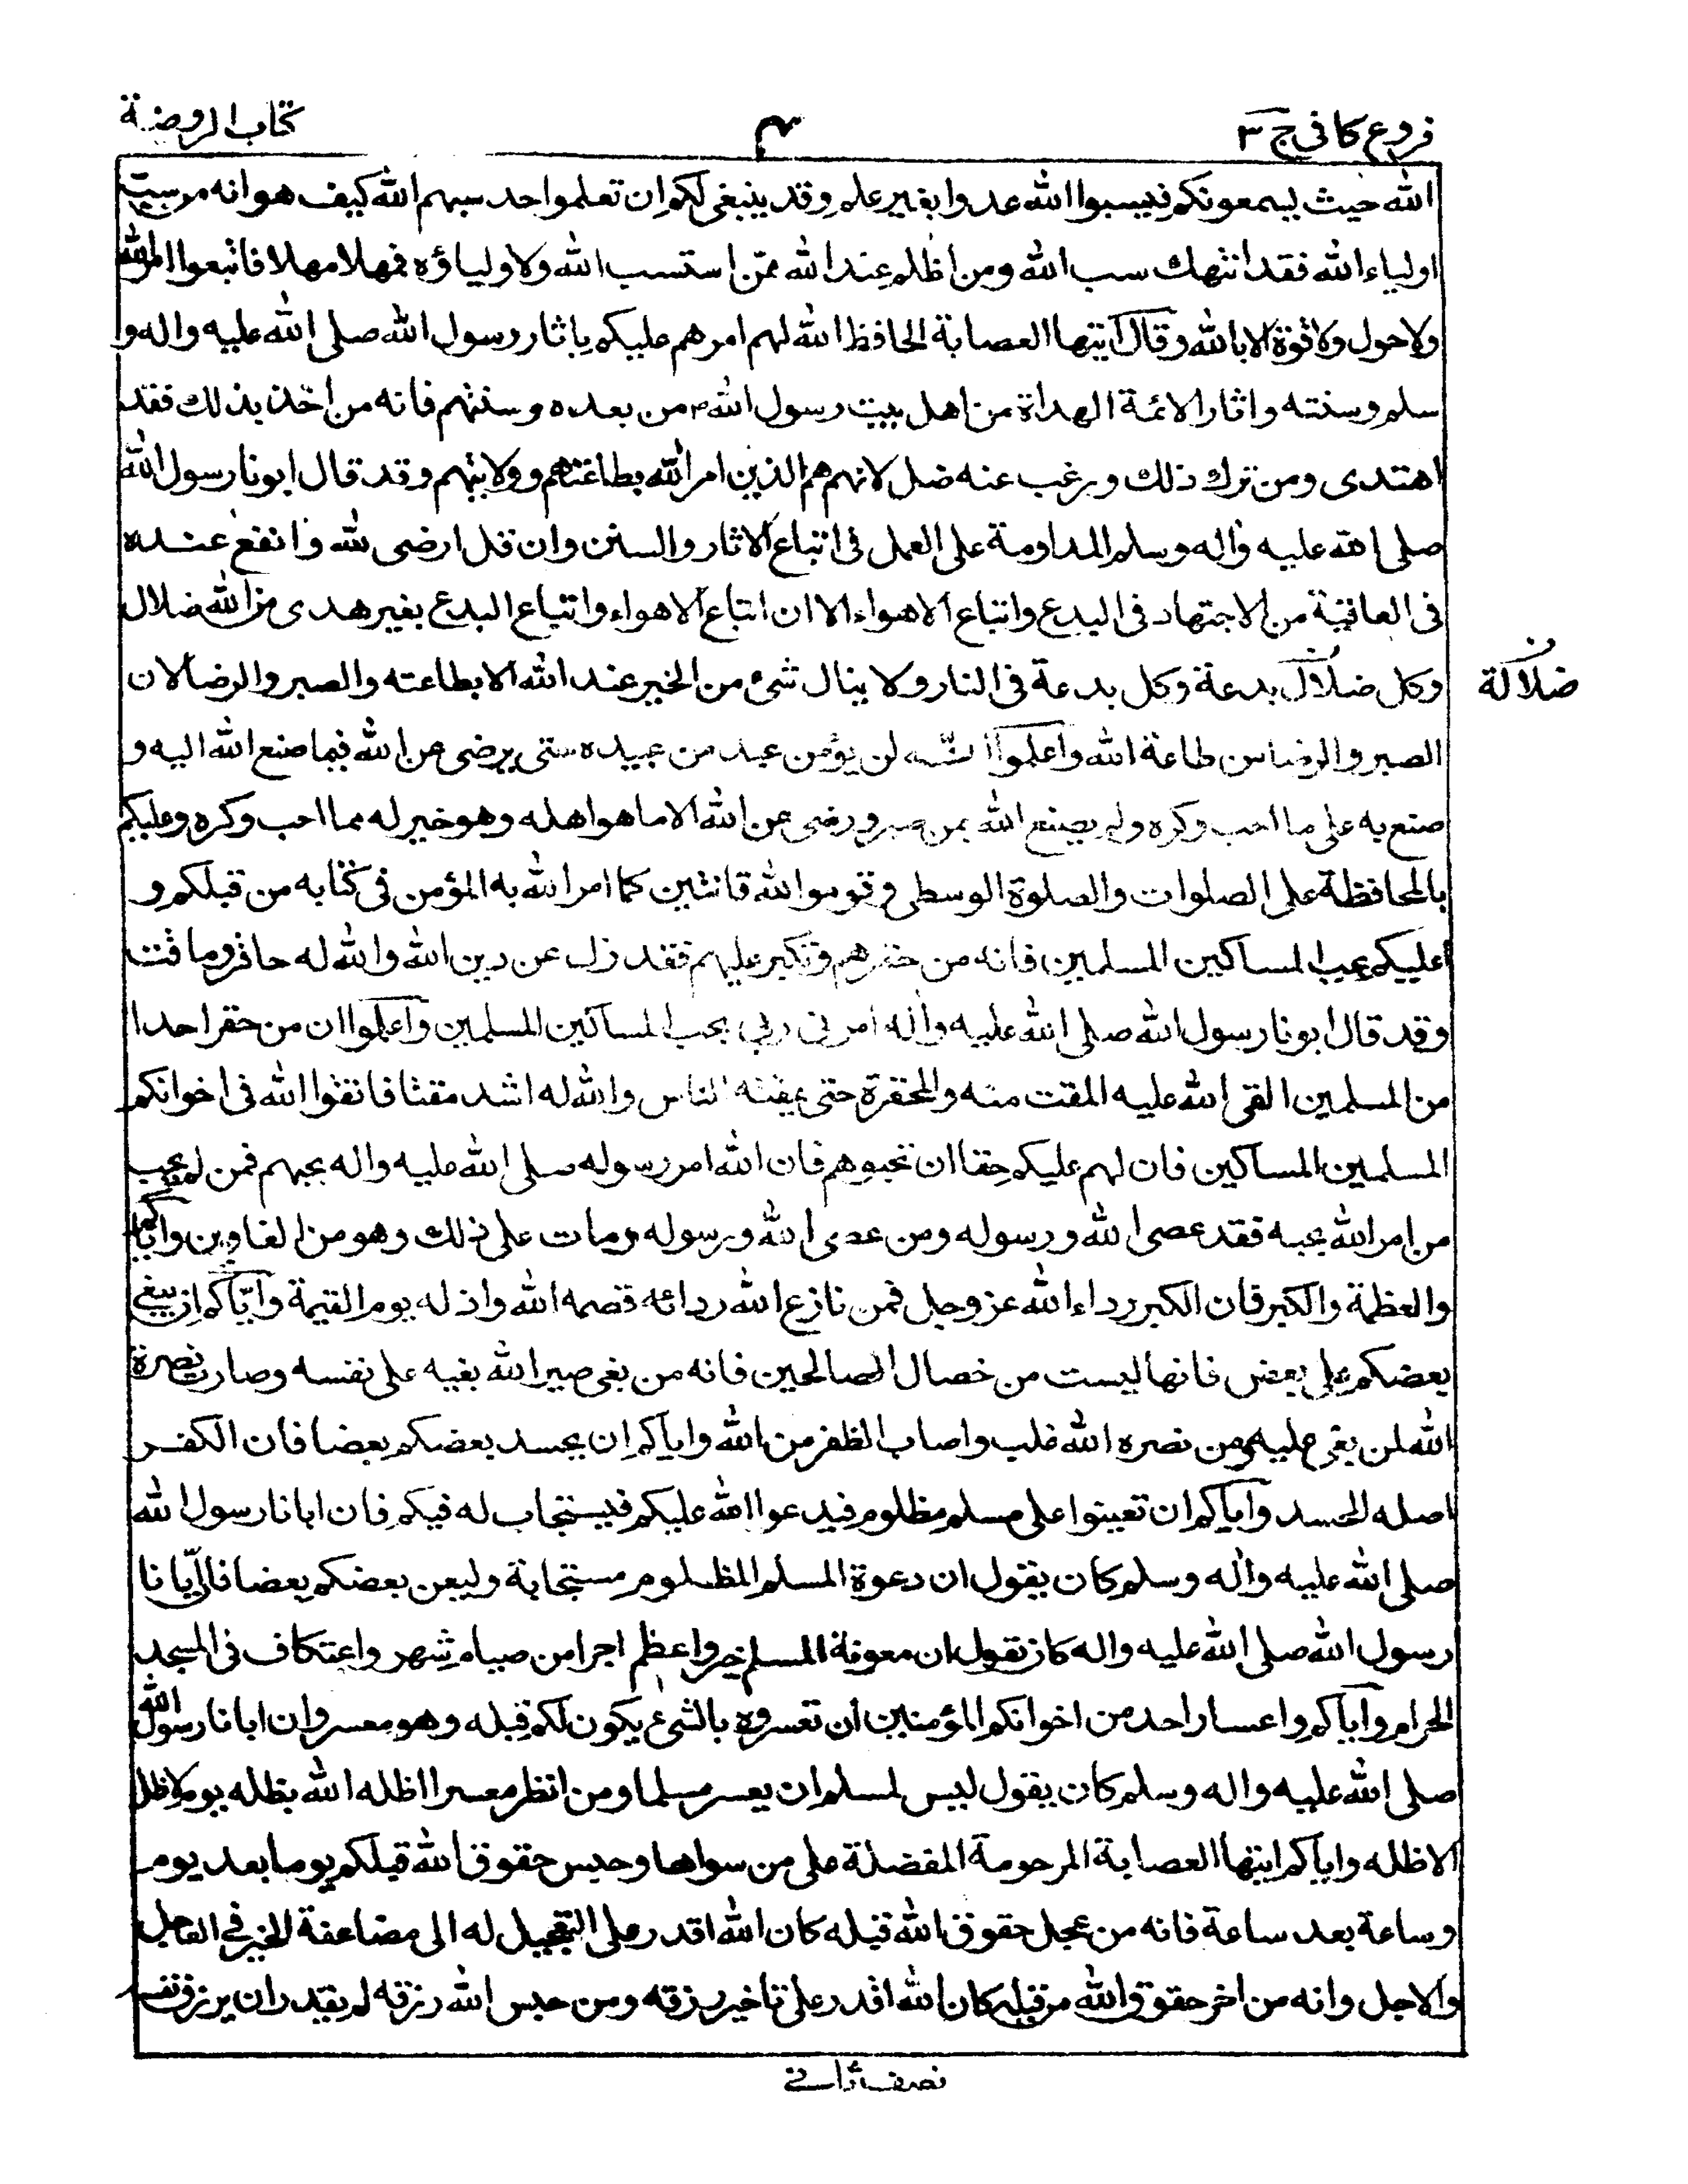 فروع كافى ج ٣
٤
كتاب الروضة
الله حيث يسمعونكم فيسبوا الله عدوا بغير علم وقد ينبغى لكم ان تعلموا حد سبهم الله كيف هو انه من سب
اولياء الله فقد انتهك سب الله ومن اظلم عند الله ممن استسب الله ولاولياؤه فمهلا مهلا فاتبعوا امر الله
ولاحول ولاقوة الا بالله وقال ايتها العصابة الحافظ الله لهم امرهم عليكم باثار رسول الله صلى الله عليه واله و
سلم وسنته واثار الائمة الهداة من اهل بيت رسول الله ص من بعده وسنتهم فانه من اخذ بذلك فقد
اهتدى ومن ترك ذلك ورغب عنه ضل لانهم هم الذين امر الله بطاعتهم وولايتهم وقد قال ابونا رسول الله
صلى الله عليه واله وسلم المداومة على العمل فى اتباع الاثار والسنن وان قل ارضى لله وانفع عنده
فى العاقبة من الاجتهاد فى البدع واتباع الاهواء الا ان اتباع الاهواء واتباع البدع بغير هدى من الله ضلال
وكل ضلال بدعة وكل بدعة فى النار ولا ينال شئ من الخير عند الله الا بطاعته والصبر والرضا لان
ضلالة
الصبر والرضا من طاعة الله واعلموا انه لن يؤمن عبد من عبيده حتى يرضى عن الله فيما صنع الله اليه و
صنع به على ما احب وكره ولم يصنع الله بمن صبر ورضى عن الله الا ما هو اهله وهو خير له مما احب وكره وعليكم
بالمحافظة على الصلوات والصلوة الوسطى وقوموا لله قانتين كما امر الله به المؤمن فى كتابه من قبلكم و
عليكم بحب المساكين المسلمين فانه من حقرهم وتكبر عليهم فقد زل عن دين الله والله له حاقر وماقت
وقد قال ابونا رسول الله صلى الله عليه واله امرنى ربى بحب المساكين المسلمين واعلموا ان من حقر احدا
من المسلمين القى الله عليه المقت منه والمحقرة حتى يمقته الناس والله له اشد مقتا فاتقوا الله فى اخوانكم
المسلمين المساكين فان لهم عليكم حقا ان تحبوهم فان الله امر رسوله صلى الله عليه واله بحبهم فمن لم يحب
من امر الله بحبه فقد عصى الله ورسوله ومن عصى الله ورسوله ومات على ذلك وهو من الغاوين واياكم
والعظمة والكبر فان الكبر رداء الله عز وجل فمن نازع الله ردائه قصمه الله واذله يوم القيمة واياكم ان يبغى
بعضكم على بعض فانها ليست من خصال الصالحين فانه من بغى صير الله بغيه على نفسه وصارت نصرة
الله لمن بغى عليه ومن نصره الله غلب واصاب الظفر من الله واياكم ان يحسد بعضكم بعضا فان الكفر
اصله الحسد واياكم ان تعينوا على مسلم مظلوم فيدعوا الله عليكم فيستجاب له فيكم فان ابانا رسول الله
صلى الله عليه واله وسلم كان يقول ان دعوة المسلم المظلوم مستجابة وليعن بعضكم بعضا فان ابانا
رسول الله صلى الله عليه واله كان يقول ان معونة المسلم خير واعظم اجرا من صيام شهر واعتكاف فى المسجد
الحرام واياكم واعسار احد من اخوانكم المؤمنين ان تعسروه بالشئ يكون لكم قبله وهو معسر وان ابانا رسول الله
صلى الله عليه واله وسلم كان يقول ليس لمسلم ان يعسر مسلما ومن انظر معسرا اظله الله بظله يوم لا ظل
الا ظله واياكم ايتها العصابة المرحومة المفضلة على من سواها وحبس حقوق الله قبلكم يوما بعد يوم
وساعة بعد ساعة فانه من عجل حقوق الله قبله كان الله اقدر على التعجيل له الى مضاعفة الخير فى العاجل
والاجل وانه من اخر حقوق الله من قبله كان الله اقدر على تاخير رزقه ومن حبس الله رزقه لم يقدر ان يرزق نفسه